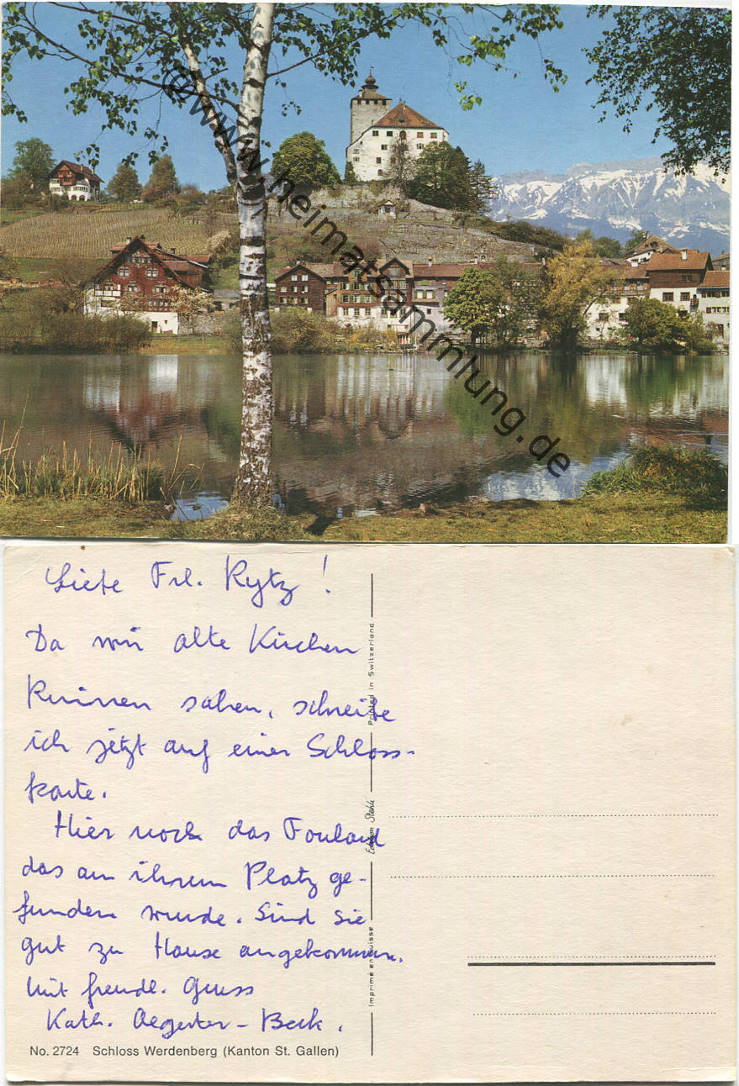 © www.heimatsammlung.de
Liebe Frl. Rytz!
Da wir alte Kirchen
Ruinen sahen, schreibe
ich jetzt auf einer Schloss-
karte.
Hier noch das Foulard
das an ihrem Platz ge-
funden wurde. Sind Sie
gut zu Hause angekommen.
Mit freudl. Gruss
Kath. Aegerter-Beck.
No. 2724 Schloss Werdenberg (Kanton St. Gallen)
Printed in Switzerland
Imprimé en Suisse